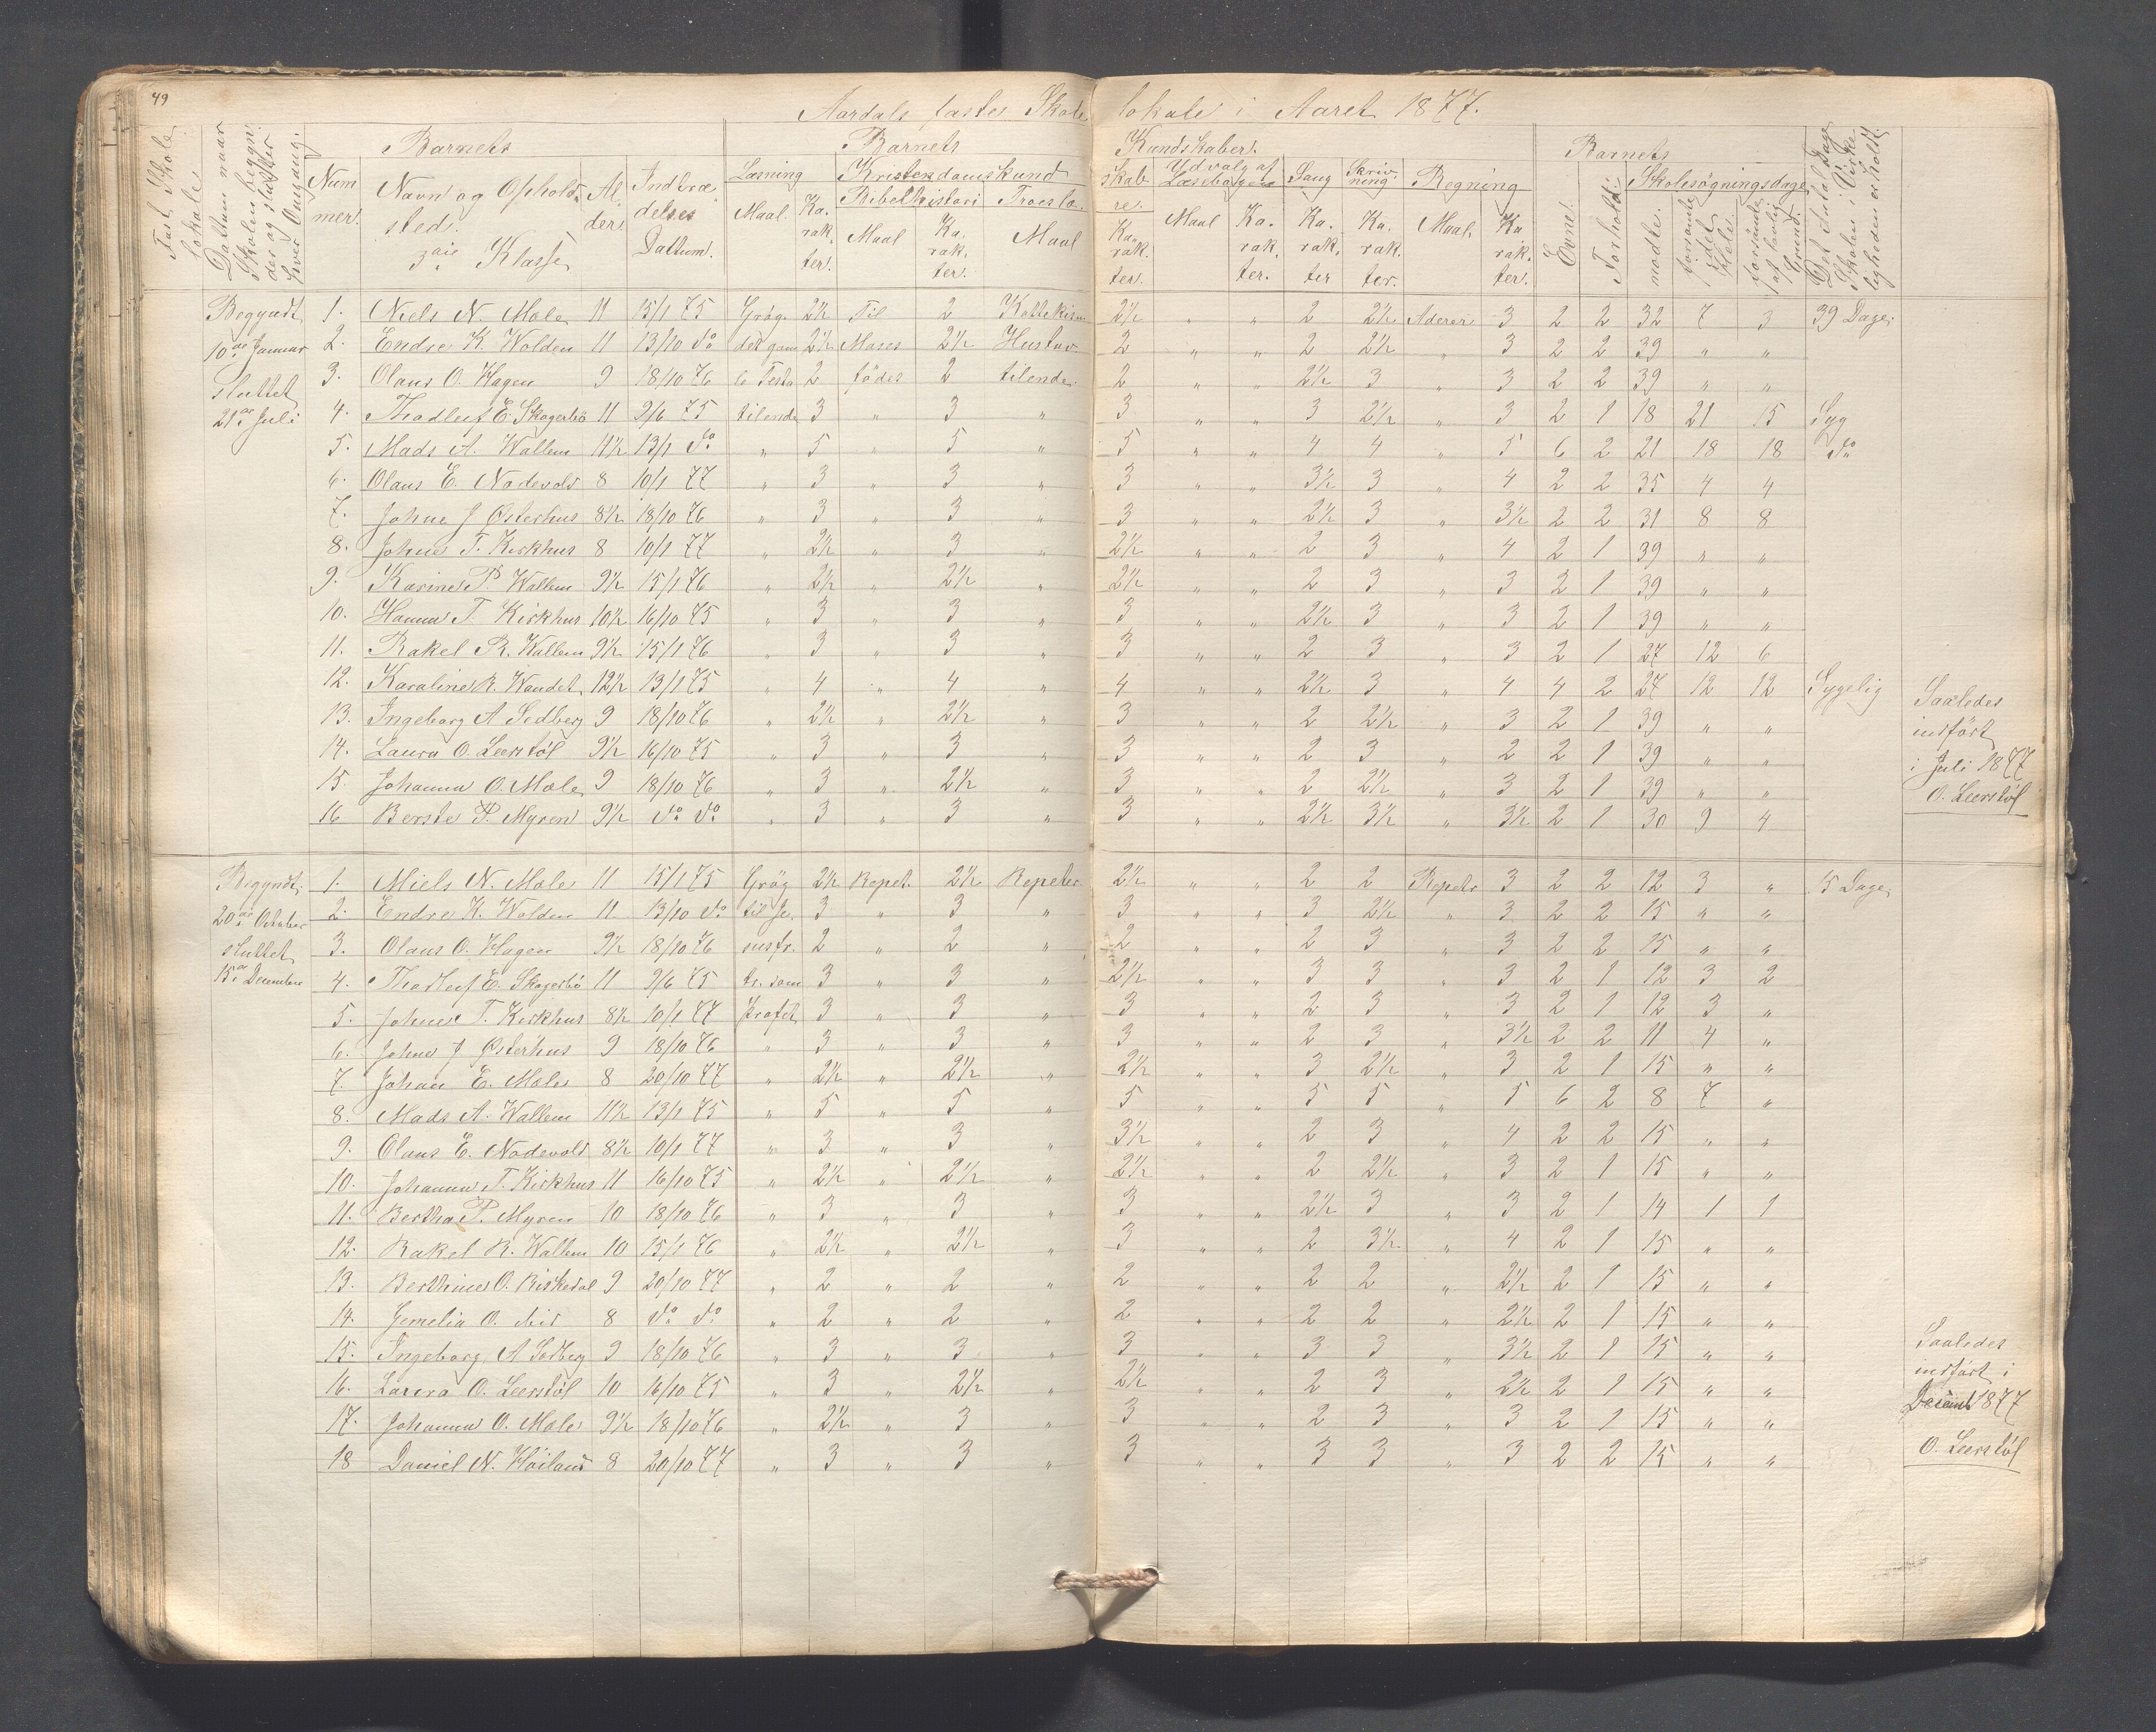 49
Aardals faste Skolelokale i Aaret 1877.
Fast Skolelokale.
Datum naar Skolen begynder og slutter hver Omgang.
Barnets
Nummer.
Navn og Opholdssted.
3die Klasse
Alder.
Indtrædelses Dattum.
Barnets Kundskaber.
Læsning
Maal. Karakter.
Kristendomskundskab
Bibelhistori
Maal Karakter.
Troeslære.
Maal Karakter.
Udvalg af Læsebogen
Maal Karakter.
Sang Karakter
Skrivning Karakter.
Regning
Maal. Karakter.
Barnets
Evne.
Forhold.
Skolesøgningsdage
mødte.
forsømte i det Hele.
forsømte af lovlig Grund.
Det Antal Dage Skolen i Virkeligheden er holdt.
Begyndt 1. Niels N. Mæle 11 15/1 75 Gråg. 2½ Til 2 Kattekism 2½ " " 2 2½ Aderer 3 2 2 32 7 3 39 Dage.
10de Januar 2. Endre K. Wolden 11 13/10 do det gam 2½ Moses 2½ Hustav. 2 " " 2 2½ " 3 2 2 39 " "
sluttet 3. Olaus O. Hagen 9 18/10 76 le Testa 2 fødes 2 tilende. 2 " " 2½ 3 " 3 2 2 39 " "
21de Juli 4. Thodluf E. Skogerbø 11 9/6 75 tilende 3 " 3 " 3 " " 3 2½ " 3 2 1 18 21 15 Syg
5. Mads A. Wallem 11½ 13/1 do " 5 " 5 " 5 " " 4 4 " 5 6 2 21 18 18 do
6. Olaus E. Nodevold 8 10/1 77 " 3 " 3 " 3 " " 3½ 3 " 4 2 2 35 4 4
7. Johne J Østerhus 8½ 18/10 76 " 3 " 3 " 3 " " 2½ 3 " 3½ 2 2 31 8 8
8. Johne T. Kirkhus 8 10/1 77 " 2½ " 3 " 2½ " " 2 3 " 4 2 1 39 " "
9. Karine P. Wallem 9½ 15/1 76 " 2½ " 2½ " 2½ " " 2 3 " 3 2 1 39 " "
10. Hanna T. Kirkhus 10½ 16/10 75 " 3 " 3 " 3 " " 2½ 3 " 3 2 1 39 " "
11. Rakel R. Wallem 9½ 15/1 76 " 3 " 3 " 3 " " 2 3 " 3 2 1 27 12 6
12. Karaline R. Wandet 12½ 13/1 75 " 4 " 4 " 4 " " 2½ 3 " 4 4 2 27 12 12 Sygelig
13. Ingeborg A Sedberg 9 18/10 76 " 2½ " 2½ " 3 " " 2 2½ " 3 2 1 39 " "
14. Laura O. Leerstøl 9½ 16/10 75 " 3 " 3 " 3 " " 2 3 " 2 2 1 39 " "
15. Johanna O. Mæle 9 18/10 76 " 3 " 2½ " 3 " " 2 2½ " 3 2 1 39 " "
16 Berste P. Myren 9½ do do " 3 " 3 " 3 " " 2½ 3½ " 3½ 2 1 30 9 4
Saaledes
indført
i Juli 1877
O. Leerstøl
Begyndt. 1. Niels N. Mæle 11 15/1 75 Gråg 2½ Repet. 2½ Repeter 2½ " " 2 2 Repeter 3 2 2 12 3 " 15 Dage
20de October 2. Endre K. Wolden 11 13/10 do til Je. 3 " 3 " 3 " " 3 2½ " 3 2 2 15 " "
sluttet 3. Olaus O. Hagen 9½ 18/10 76 susfr. 2 " 2 " 2 " " 2 3 " 3 2 2 15 " "
15de December 4. Thodluf E. Skogerbø 11 9/6 75 tr. som 3 " 3 " 2½ " " 3 3 " 3 2 1 12 3 2
5. Johne T. Kirkhus 8½ 10/1 77 Profet 3 " 3 " 3 " " 2 3 " 3 2 1 12 3 "
6. Johne J Østerhus 9 18/10 76 " 3 " 3 " 3 " " 2 3 " 3½ 2 2 11 4 "
7. Johan E. Mæle 8 20/10 77 " 2½ " 2½ " 2½ " " 3 2½ " 3 2 1 15 " "
8. Mads A. Wallem 11½ 13/1 75 " 5 " 5 " 5 " " 5 5 " 5 6 2 8 7 "
9. Olaus E. Nodevold 8½ 10/1 77 " 3 " 3 " 3½ " " 2 3 " 4 2 2 15 " "
10. Johanna T. Kirkhus 11 16/10 75 " 2½ " 2½ " 2½ " " 2 2½ " 3 2 1 15 " "
11. Bertha P. Myren 10 18/10 76 " 3 " 3 " 3 " " 2½ 3 " 3 2 1 14 1 1
12. Rakel R. Wallem 10 15/1 76 " 2½ " 2½ " 3 " " 2 3½ " 4 2 1 15 " "
13. Berthine O. Riskedal 9 20/10 77 " 2 " 2 " 2 " " 2 2 " 2½ 2 1 15 " "
14. Gemelia O. ibid 8 do do " 2 " 2 " 2 " " 2 2 " 2½ 2 1 15 " "
15. Ingeborg A Sedberg 9 18/10 76 " 3 " 3 " 3 " " 3 3 " 3½ 2 1 15 " "
16. Laura O. Leerstøl 10 16/10 75 " 3 " 2½ " 2½ " " 2 3 " 2½ 2 1 15 " "
17. Johanna O. Mæle 9½ 18/10 76 " 2½ " 3 " 3 " " 2 3 " 3 2 1 15 " "
18 Daniel N. Høiland 8 20/10 77 " 3 " 3 " 3 " " 3 3 " 3 2 2 15 " "
Saaledes
indført i
Decemb 1877
O. Leerstøl